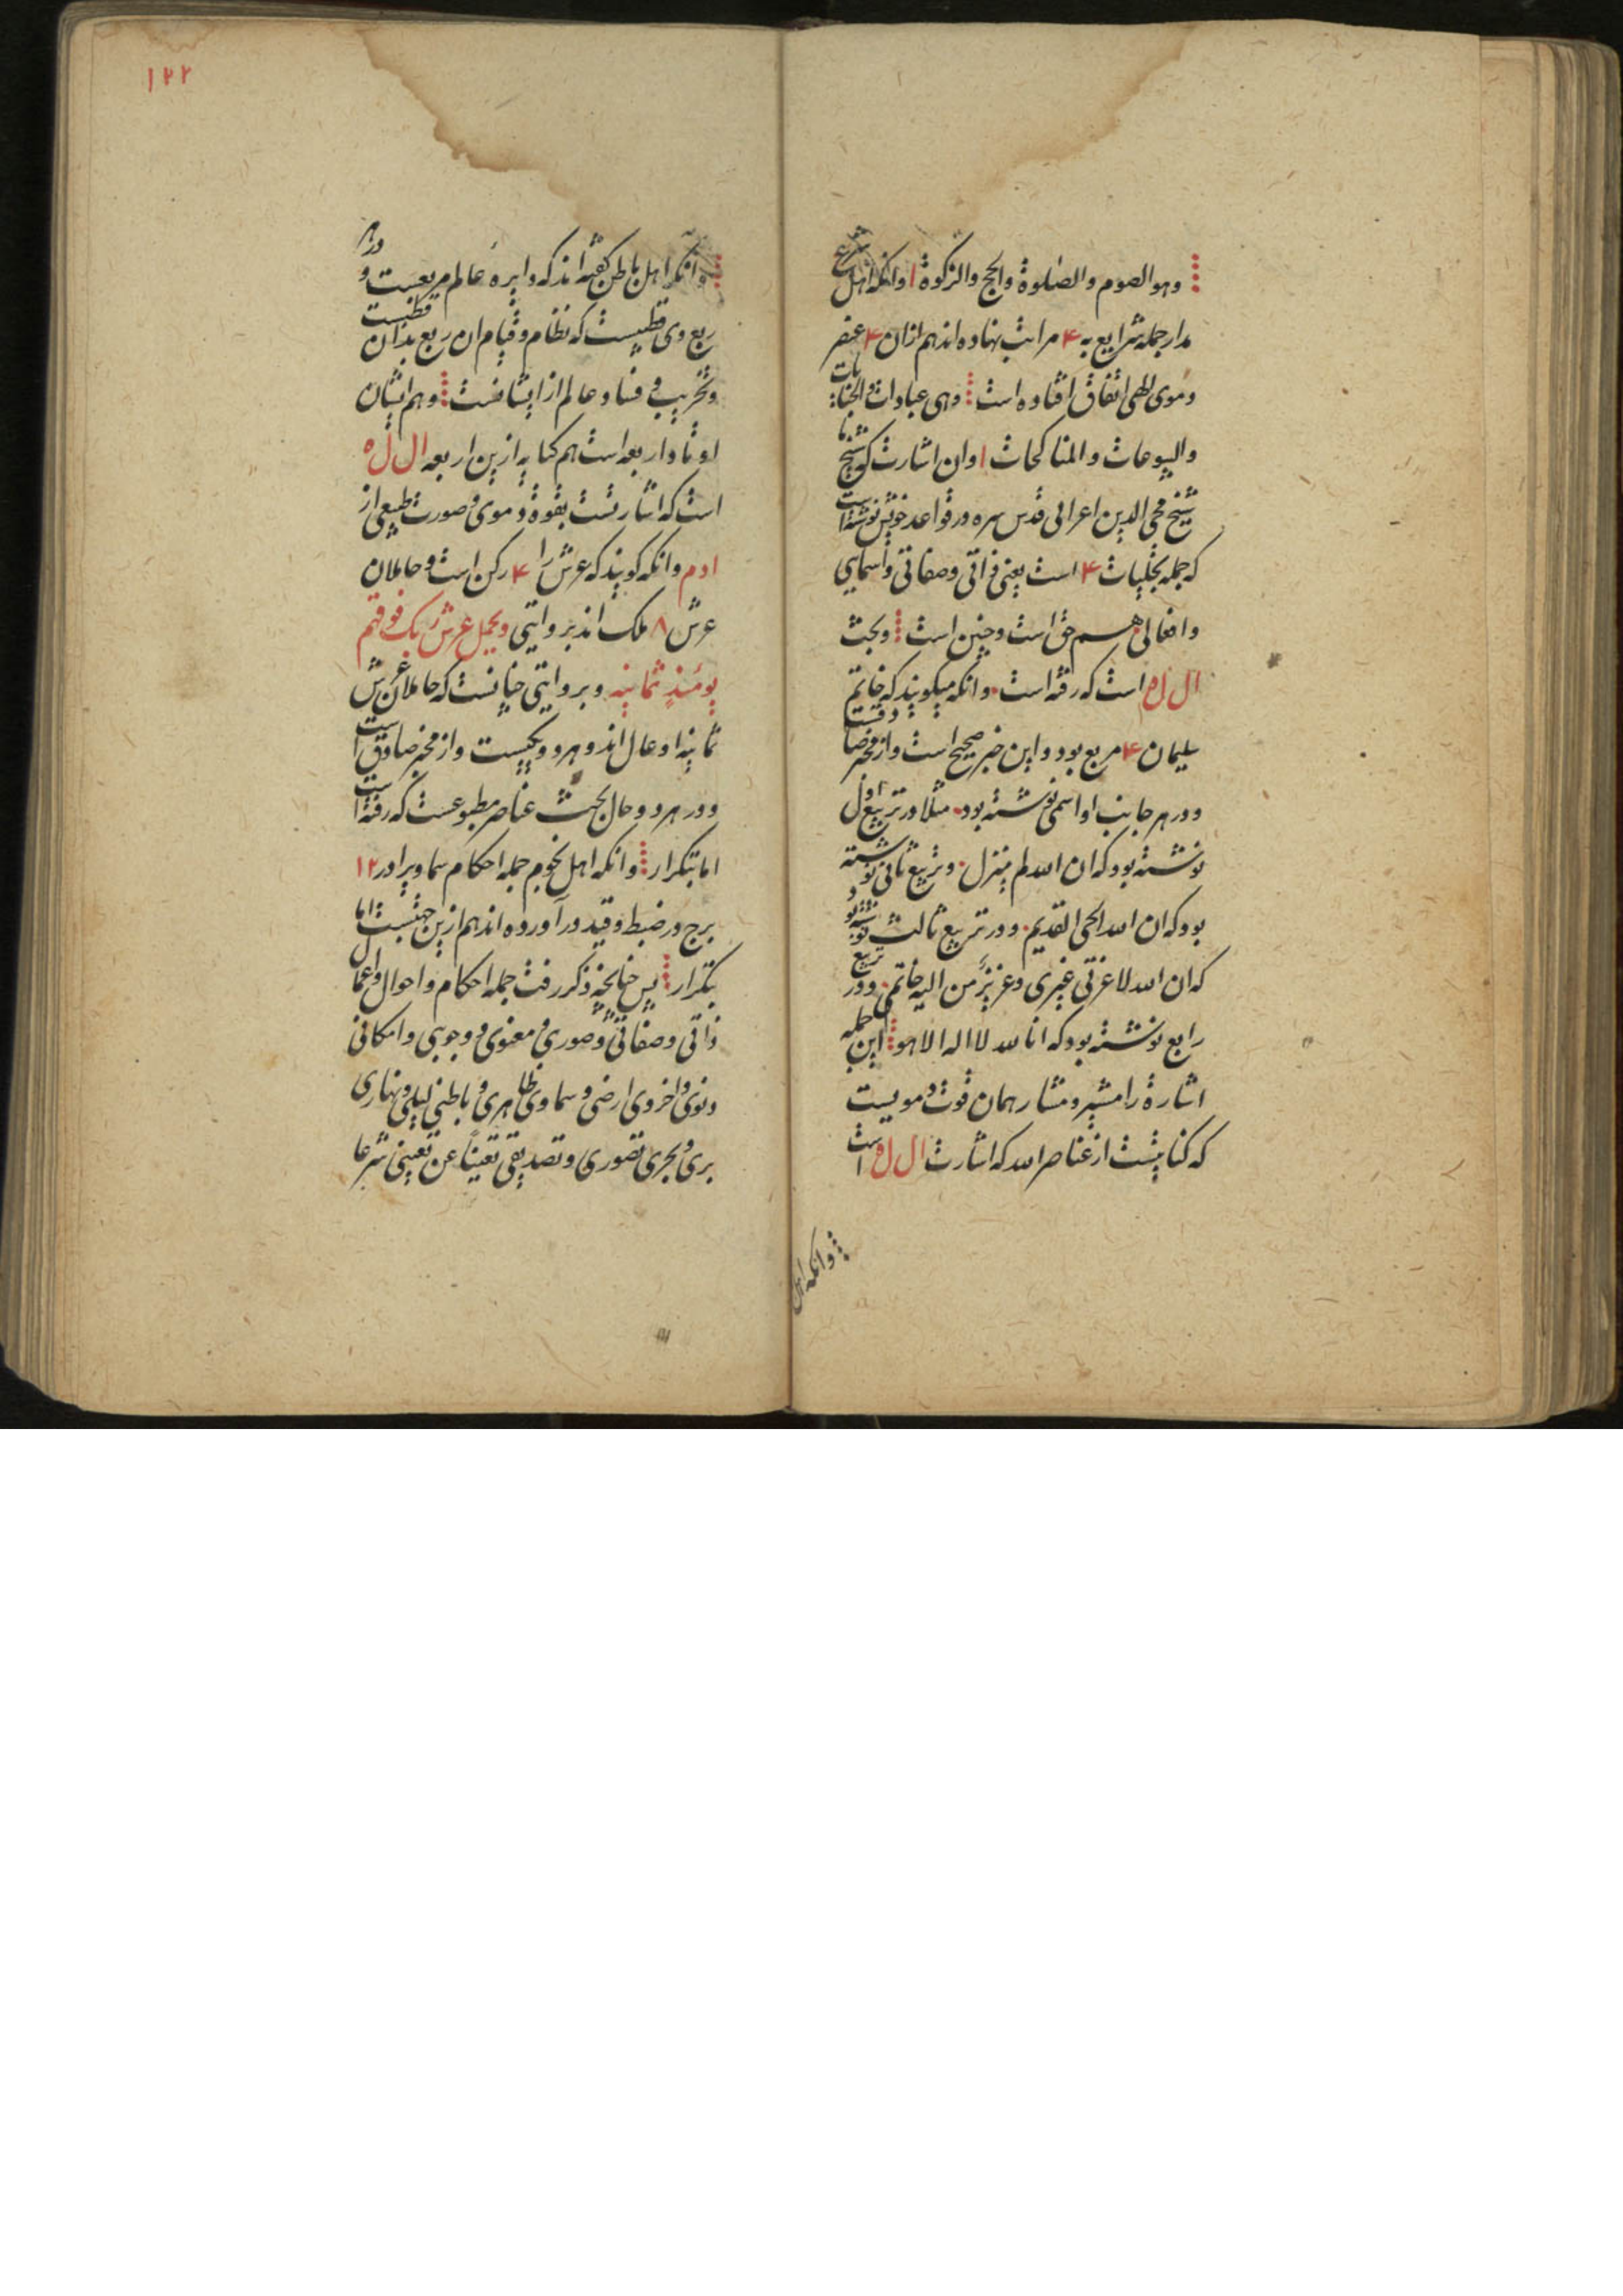 وهو الصوم والصلوة والحج والزكوة ا وانکه اهل شرع
مدار جمله شرایع به ۴ مراتب نهاده اند هم ازان ۴ عنصر
وموی اتفاق افتاده است وهی عبادات والجنایات
والبیوعات والمناکحات ا وان اشارت که شیخ
شیخ محی الدین اعرابی قدس سره در قواعد خویش نوشته است
که جمله تجلیات ۴ است یعنی ذاتی وصفاتی واسمایی
وافعالی هم حق است وچنین است وبحث
ال ل ه است که رفته است وانکه میکویند که خاتم
سلیمان ۴ مربع بود واین خبر صحیح است واز مخبر صادقست
ودر هر جانب او اسمی نوشته بود مثلا در تربیع اول
نوشته بود که ان الله لم ینزل وتربیع ثانی نوشته
بود که ان الله الحی القدیم ودر تربیع ثالث نوشته بود
که ان الله لا عزتی غیری وعزیز من الیه خاتمی ودر تربیع
رابع نوشته بود که انا لله لا اله الا هو این جمله
اشارة را مشیر ومشار همان قوت ومویست
که کنایتست از عناصر الله که اشارت ال ل ه است
وانکه اهل
۱۲۲
وانکه اهل باطن کفته اند که دایره عالم مربعست ودر هر
ربع وی قطبیست که نظام وقیام ان ربع بدان قطبست
وتخریب وفساد عالم از ایشانست وهم ایشان
اوتاد اربعه است هم کنایه ازین اربعه ال ل ه
است که اشارتست بقوة وموی وصورت طبیعی از
ادم وانکه کویند که عرش را ۴ رکن است وحاملان
عرش ۸ ملک اند بروایتی ویحمل عرش ربک فوقهم
یومئذ ثمانیة وبروایتی چنانست که حاملان عرش
ثمانیه اوعال اند وهر دو یکیست واز مخبر صادق است
ودر هر دو حال بحث عناصر مطبوعست که رفته است
اما بتکرار وانکه اهل نجوم جمله احکام سماویرا در ۱۲
برج در ضبط وقید درآورده اند هم ازین جهتست اما
بتکرار پس چنانچه ذکر رفت جمله احکام واحوال واعمال
ذاتی وصفاتی وصوری ومعنوی ووجوبی وامکانی
دنیوی واخروی ارضی وسماوی ظاهری وباطنی لیلی ونهاری
بری وبحری تصوری وتصدیقی تعینا عن تعینی شرعا